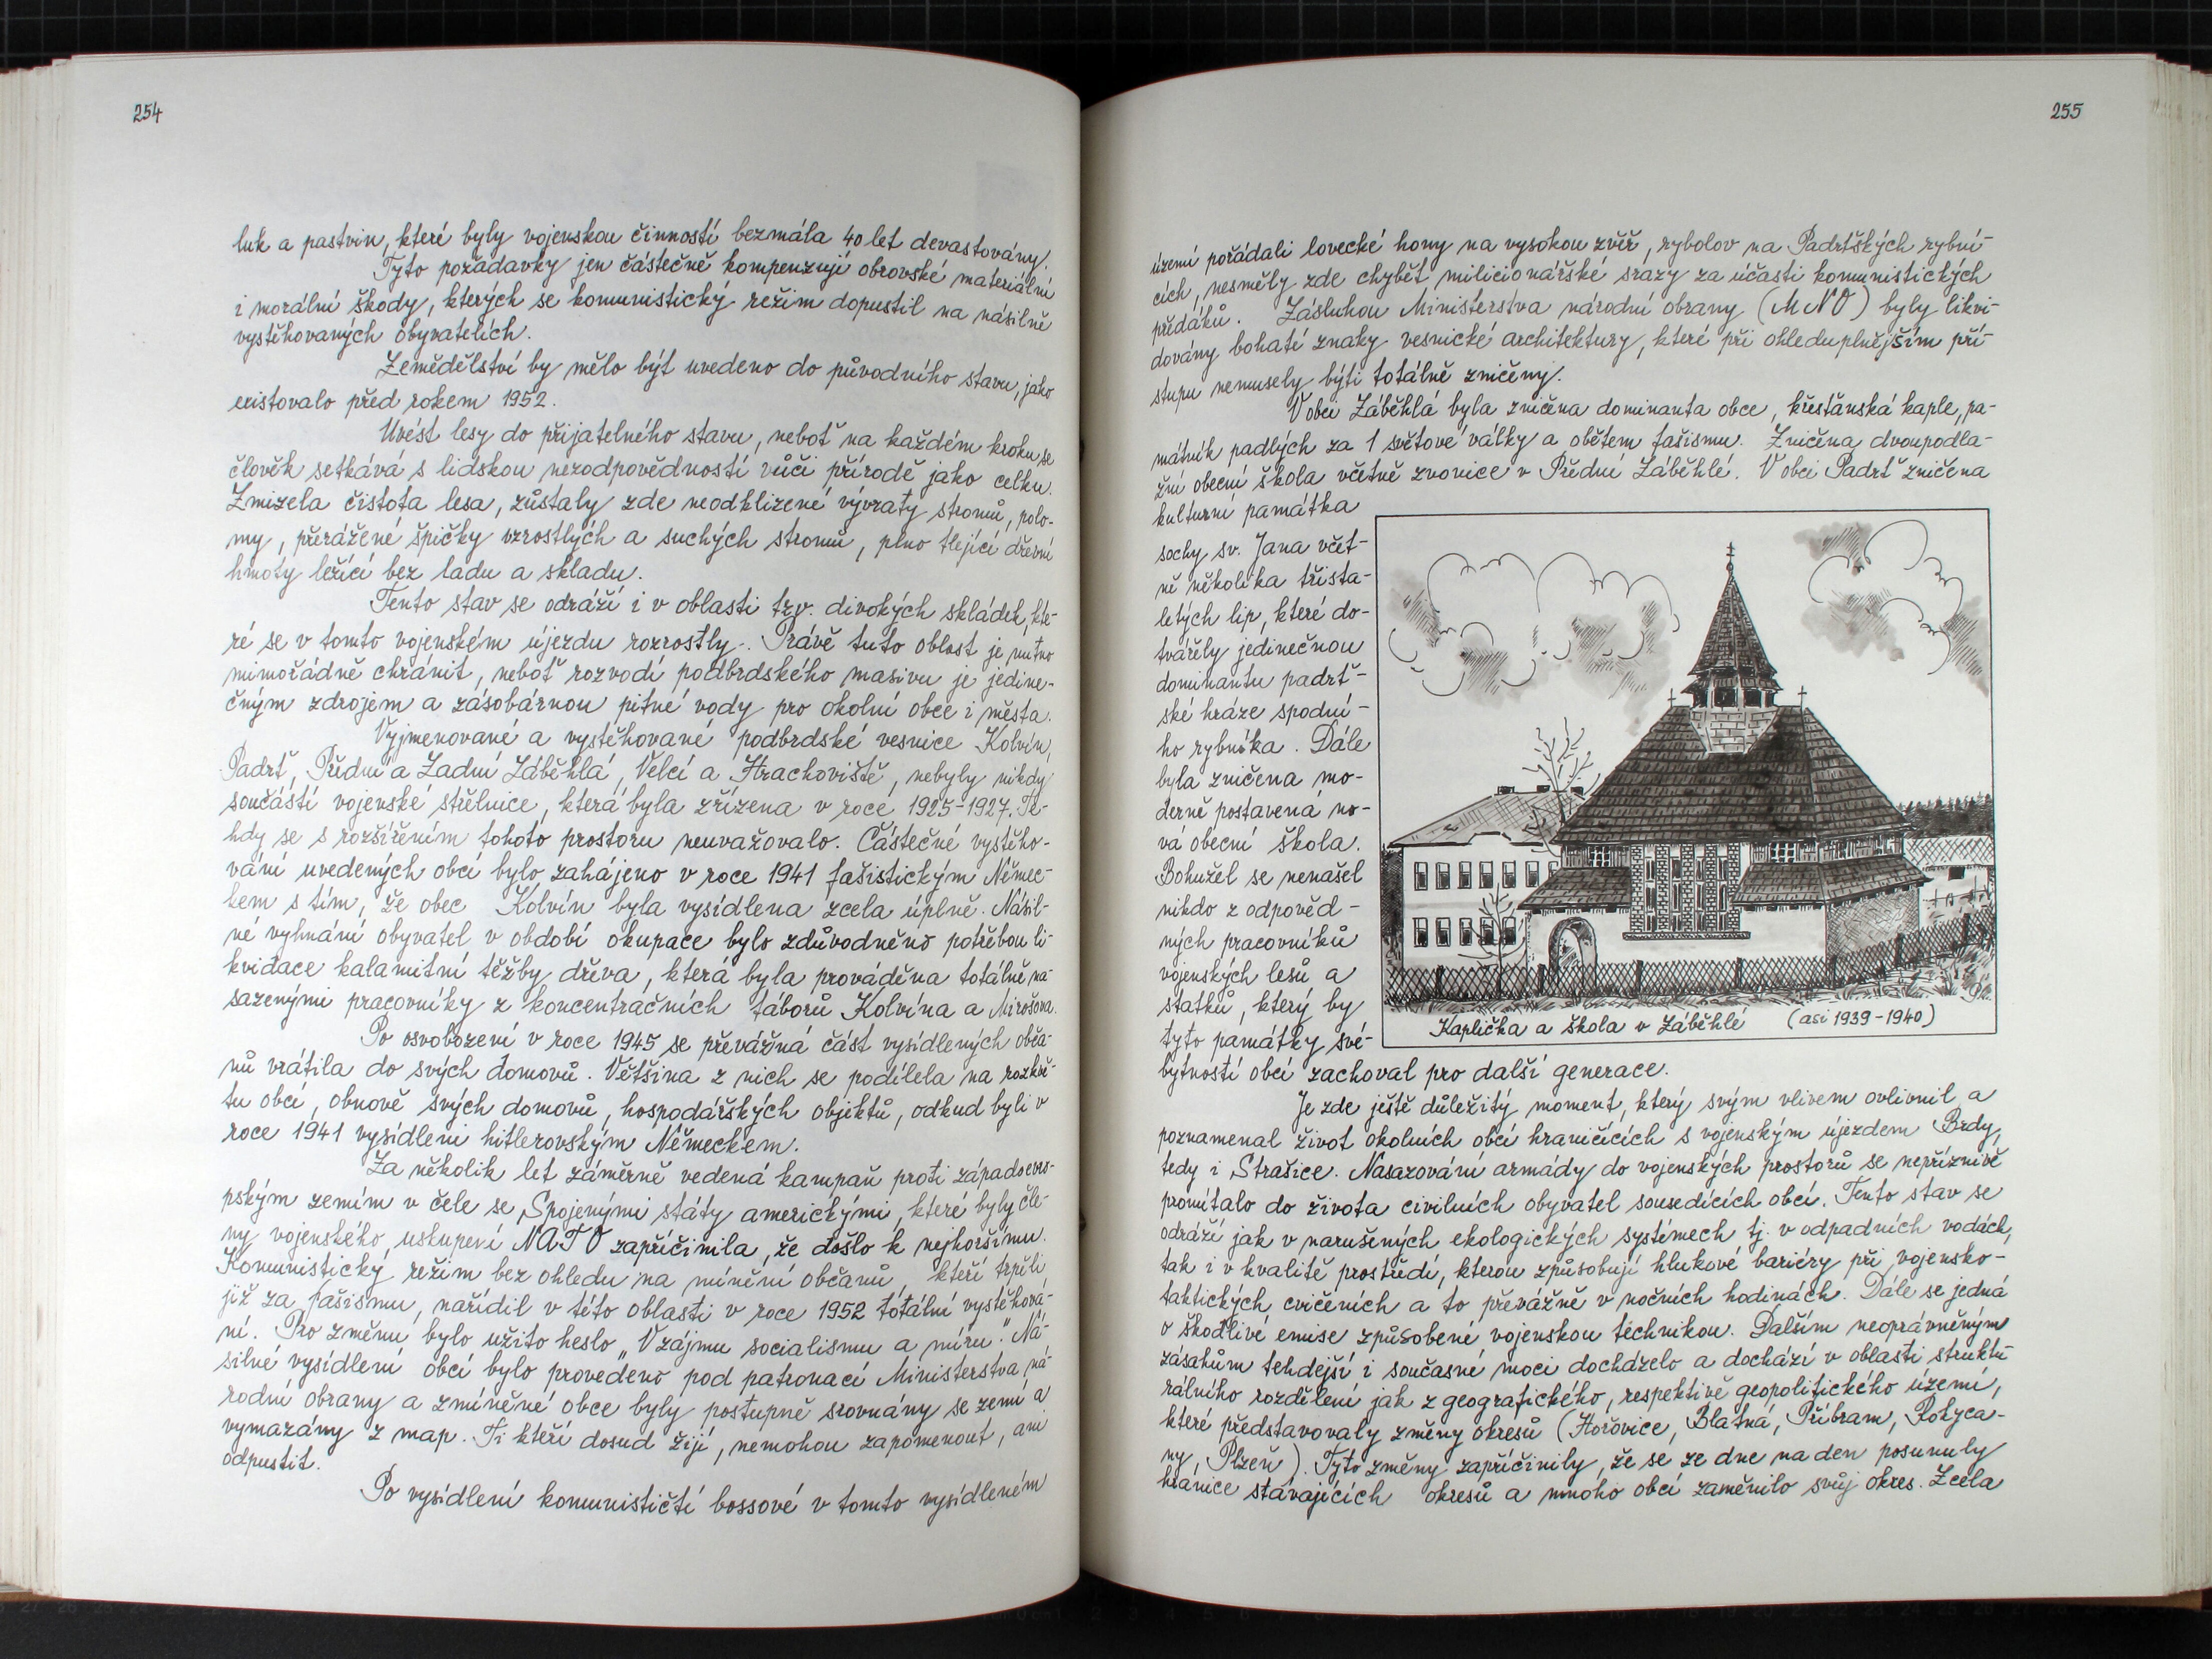 254
luk a pastvin, které byly vojenskou činností bezmála 40 let devastovány.
Tyto požadavky jen částečně kompenzují obrovské materiální
i morální škody, kterých se komunistický režim dopustil na násilně
vystěhovaných obyvatelích.
Zemědělství by mělo být uvedeno do původního stavu, jako
existovalo před rokem 1952.
Uvést lesy do přijatelného stavu, neboť na každém kroku se
člověk setkává s lidskou nezodpovědností vůči přírodě jako celku.
Zmizela čistota lesa, zůstaly zde neodklizené vývraty stromů, polo-
my, přerážené špičky vzrostlých a suchých stromů, plno tlející dřevní
hmoty ležící bez ladu a skladu.
Tento stav se odráží i v oblasti tzv. divokých skládek, kte-
ré se v tomto vojenském újezdu rozrostly. Právě tuto oblast je nutno
mimořádně chránit, neboť rozvodí podbrdského masivu je jedine-
čným zdrojem a zásobárnou pitné vody pro okolní obce i města.
Vyjmenované a vystěhované podbrdské vesnice Kolvín,
Padrť, Přední a Zadní Záběhlá, Velcí a Hrachoviště, nebyly nikdy
součástí vojenské střelnice, která byla zřízena v roce 1925-1927. Te-
hdy se s rozšířením tohoto prostoru neuvažovalo. Částečné vystěho-
vání uvedených obcí bylo zahájeno v roce 1941 fašistickým Němec-
kem s tím, že obec Kolvín byla vysídlena zcela úplně. Násil-
né vyhnání obyvatel v období okupace bylo zdůvodněno potřebou li-
kvidace kalamitní těžby dřeva, která byla prováděna totálně na-
sazenými pracovníky z koncentračních táborů Kolvína a Mirošova.
Po osvobození v roce 1945 se převážná část vysídlených obča-
nů vrátila do svých domovů. Většina z nich se podílela na rozkvě-
tu obcí, obnově svých domovů, hospodářských objektů, odkud byli v
roce 1941 vysídleni hitlerovským Německem.
Za několik let záměrně vedená kampaň proti západoevro-
pským zemím v čele se Spojenými státy americkými, které byly čle-
ny vojenského uskupení NATO zapříčinila, že došlo k nejhoršímu.
Komunistický režim bez ohledu na mínění občanů, kteří trpěli
již za fašismu, nařídil v této oblasti v roce 1952 totální vystěhová-
ní. Pro změnu bylo užito heslo „V zájmu socialismu a míru." Ná-
silné vysídlení obcí bylo provedeno pod patronací Ministerstva ná-
rodní obrany a zmíněné obce byly postupně srovnány se zemí a
vymazány z map. Ti kteří dosud žijí, nemohou zapomenout, ani
odpustit.
Po vysídlení komunističtí bossové v tomto vysídleném
255
území pořádali lovecké hony na vysokou zvěř, rybolov na Padrťských rybní-
cích, nesměly zde chybět milicionářské srazy za účasti komunistických
předáků. Zásluhou Ministerstva národní obrany (MNO) byly likvi-
dovány bohaté znaky vesnické architektury, které při ohleduplnějším pří-
stupu nemusely býti totálně zničeny.
V obci Záběhlá byla zničena dominanta obce, křesťanská kaple, pa-
mátník padlých za 1 světové války a obětem fašismu. Zničena dvoupodla-
žní obecní škola včetně zvonice v Přední Záběhlé. V obci Padrť zničena
kulturní památka
sochy sv. Jana včet-
ně několika třista-
letých lip, které do-
tvářely jedinečnou
dominantu padrť-
ské hráze spodní-
ho rybníka. Dále
byla zničena mo-
derně postavená no-
vá obecní škola.
Bohužel se nenašel
nikdo z odpověd-
ných pracovníků
vojenských lesů a
statků, který by
tyto památky své-
bytnosti obcí zachoval pro další generace.
Kaplička a škola v Záběhlé (asi 1939-1940)
Je zde ještě důležitý moment, který svým vlivem ovlivnil a
poznamenal život okolních obcí hraničících s vojenským újezdem Brdy,
tedy i Strašice. Nasazování armády do vojenských prostorů se nepříznivě
promítalo do života civilních obyvatel sousedících obcí. Tento stav se
odráží jak v narušených ekologických systémech tj. v odpadních vodách,
tak i v kvalitě prostředí, kterou způsobují hlukové bariéry při vojensko-
taktických cvičeních a to převážně v nočních hodinách. Dále se jedná
o škodlivé emise způsobené vojenskou technikou. Dalším neoprávněným
zásahům tehdejší i současné moci docházelo a dochází v oblasti struktu-
rálního rozdělení jak z geografického, respektivě geopolitického území,
které představovaly změny okresů (Hořovice, Blatná, Příbram, Rokyca-
ny, Plzeň). Tyto změny zapříčinily, že se ze dne na den posunuly
hranice stávajících okresů a mnoho obcí zaměnilo svůj okres. Zcela